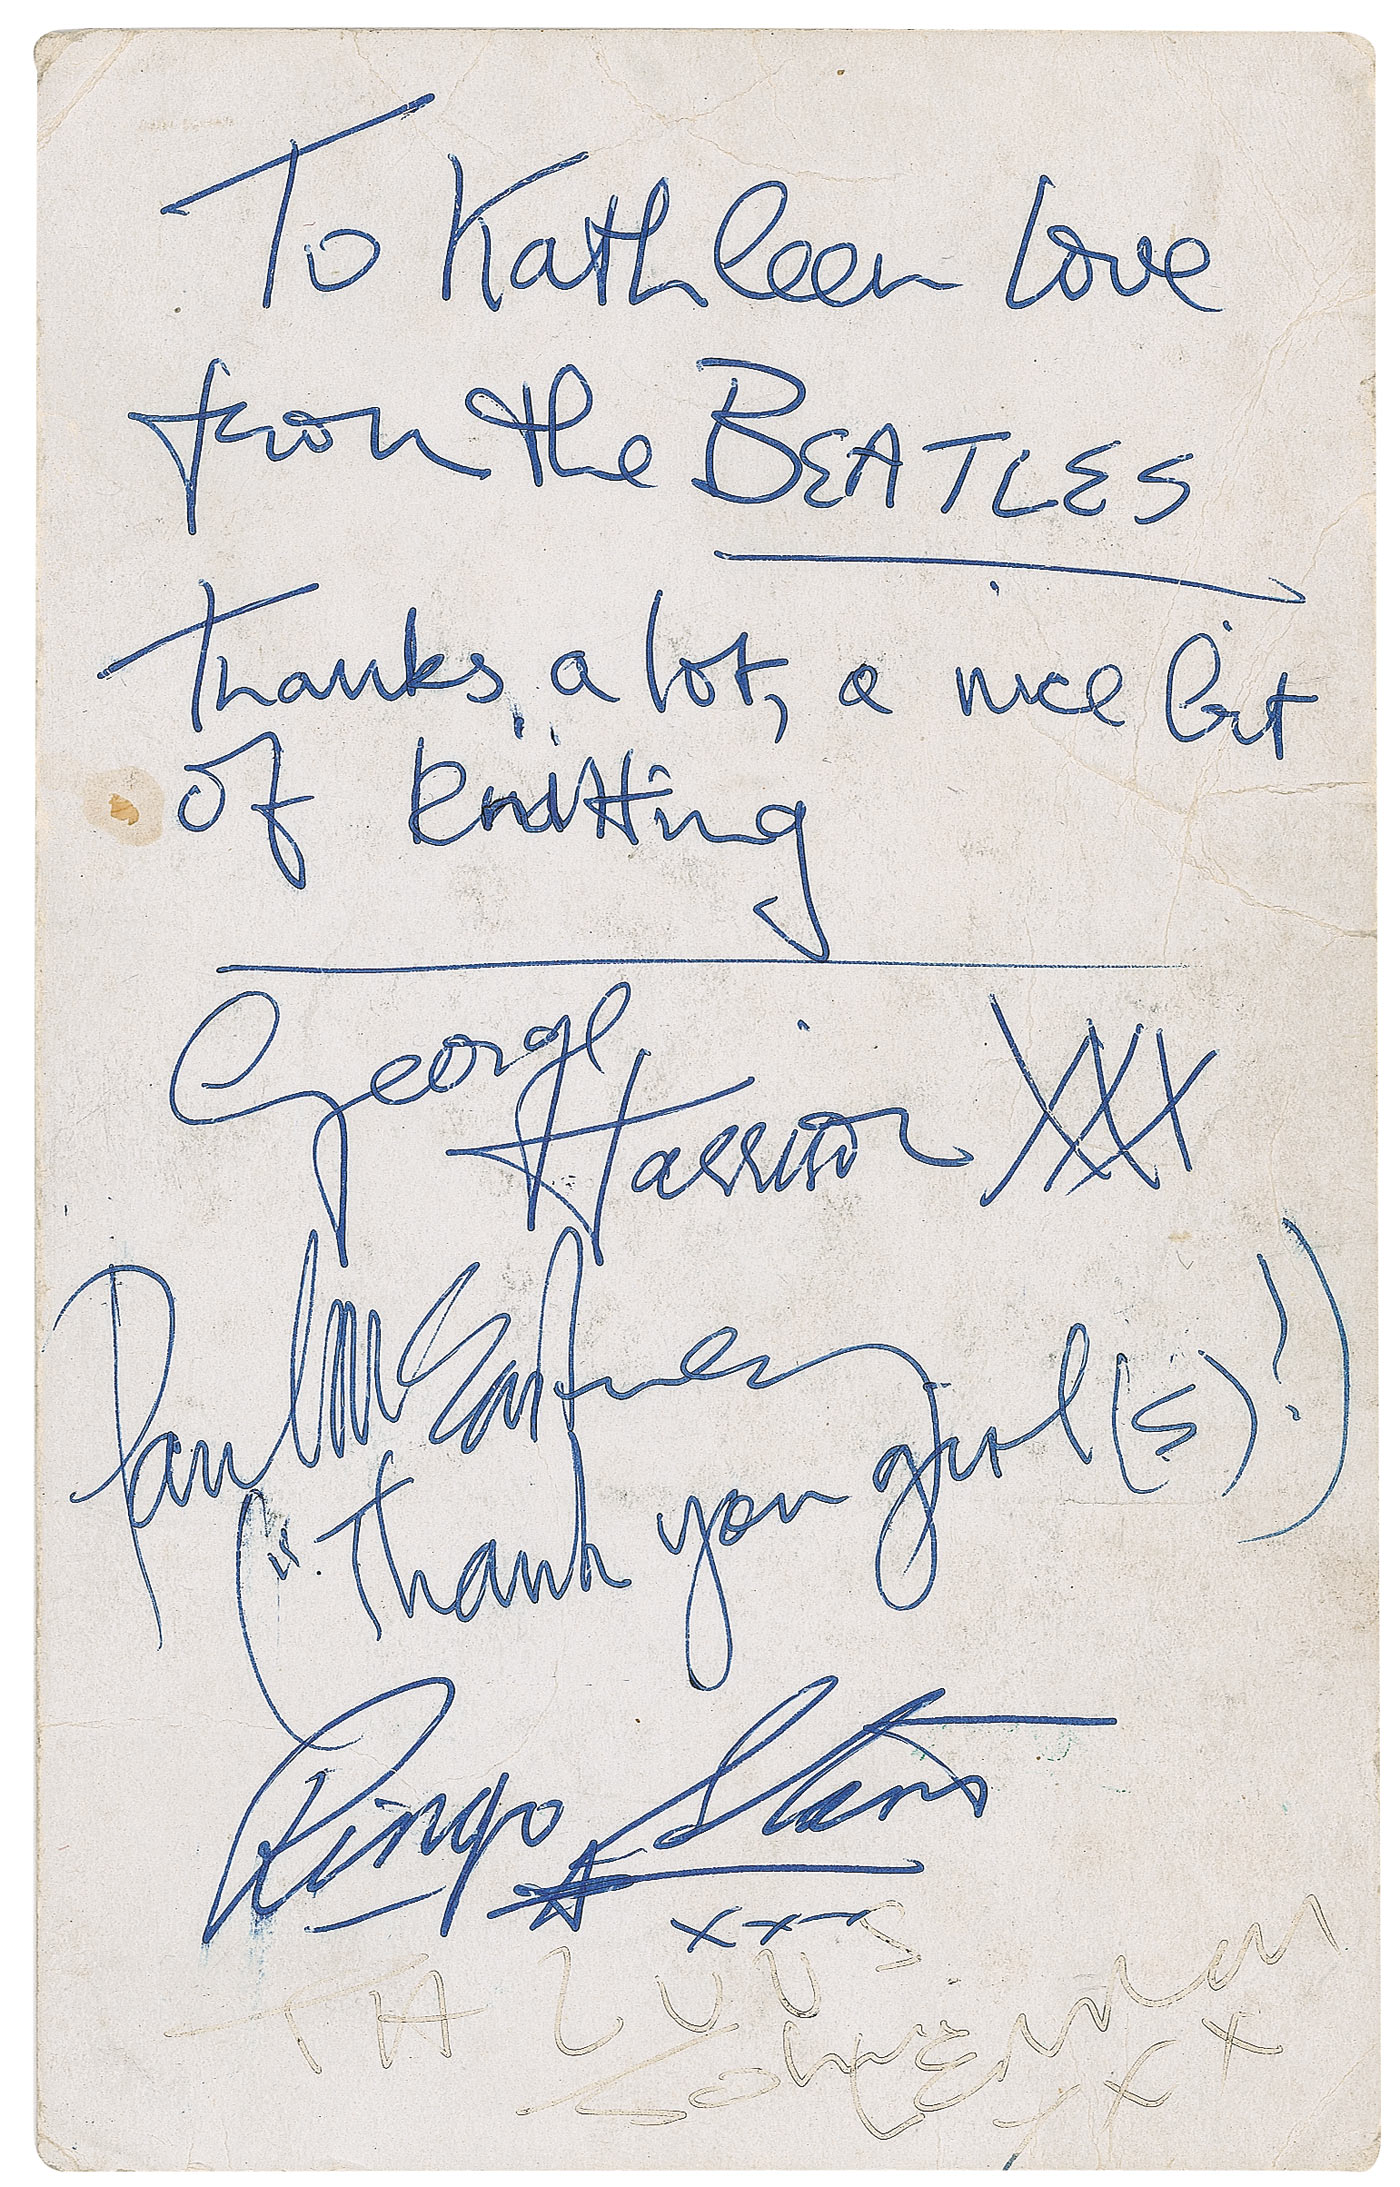 To Kathleen love
from the BEATLES
Thanks, a lot, a nice bit
of knitting
George
Harrison XXX
Paul McCartney
("Thank you girl(s)!)
Ringo Starr
xxx
John Lennon
xxx